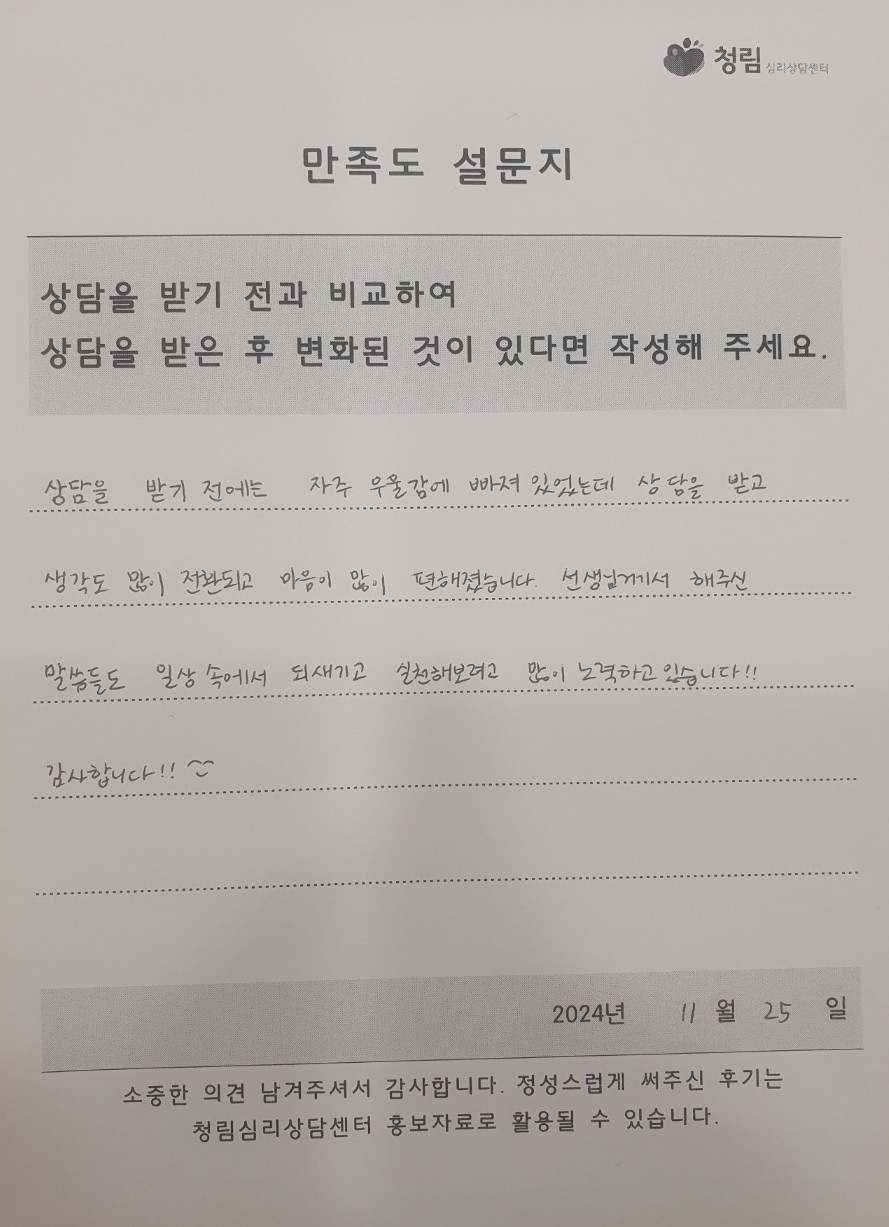 청림 심리상담센터
만족도 설문지
상담을 받기 전과 비교하여
상담을 받은 후 변화된 것이 있다면 작성해 주세요.
상담을 받기 전에는 자주 우울감에 빠져 있었는데 상담을 받고
생각도 많이 전환되고 마음이 많이 편해졌습니다. 선생님께서 해주신
말씀들도 일상 속에서 되새기고 실천해보려고 많이 노력하고 있습니다!!
감사합니다!!
2024년 11월 25일
소중한 의견 남겨주셔서 감사합니다. 정성스럽게 써주신 후기는
청림심리상담센터 홍보자료로 활용될 수 있습니다.